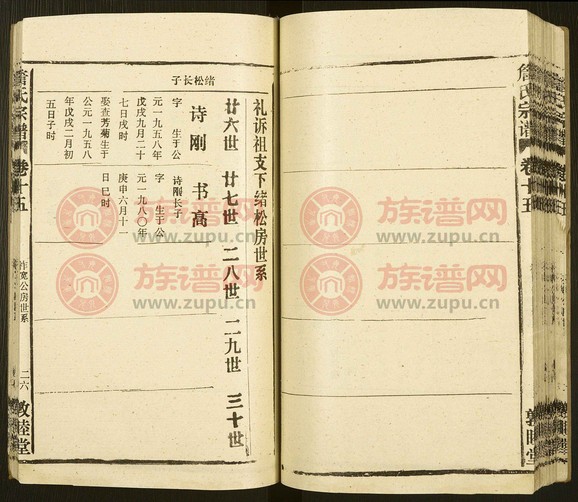 礼诉祖支下绪松房世系
廿六世 廿七世 二八世 二九世 三十世
绪松长子
诗刚
字 生于公
元一九五八年
戊戌九月二十
七日戌时
娶查芳菊生于
公元一九五八
年戊戌二月初
五日子时
书高
诗刚长子
字 生于公
元一九八〇年
庚申六月十一
日巳时
詹氏宗谱 卷十五
作宽公房世系
二六
敦睦堂
詹氏宗谱 卷十五
敦睦堂
族谱网
www.zupu.cn
族谱网
www.zupu.cn
族谱网
www.zupu.cn
族谱网
www.zupu.cn